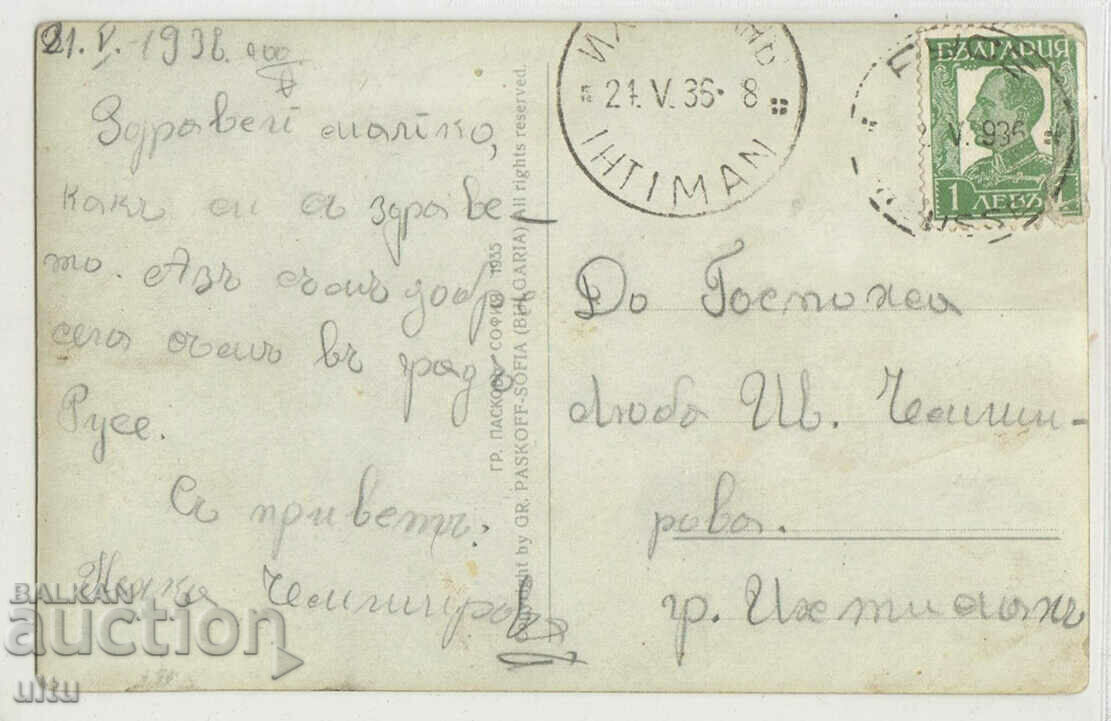 21. V. 1936 год
Здравей майко,
какъ си съ здраве-
то. Азъ съмъ добре
сега съмъ въ градъ
Русе.
Съ приветъ.
Чилингировъ
ГР. ПАСКОВЪ СОФИЯ 1935
Copyright by GR. PASKOFF-SOFIA (BULGARIA) All rights reserved.
21. V. 36· 8
IHTIMAN
V. 936
БЪЛГАРИЯ
1 ЛЕВЪ
До Госпожа
Люба Ив. Чилинги-
рова.
гр. Ихтиманъ
BALKAN
auction
ultu